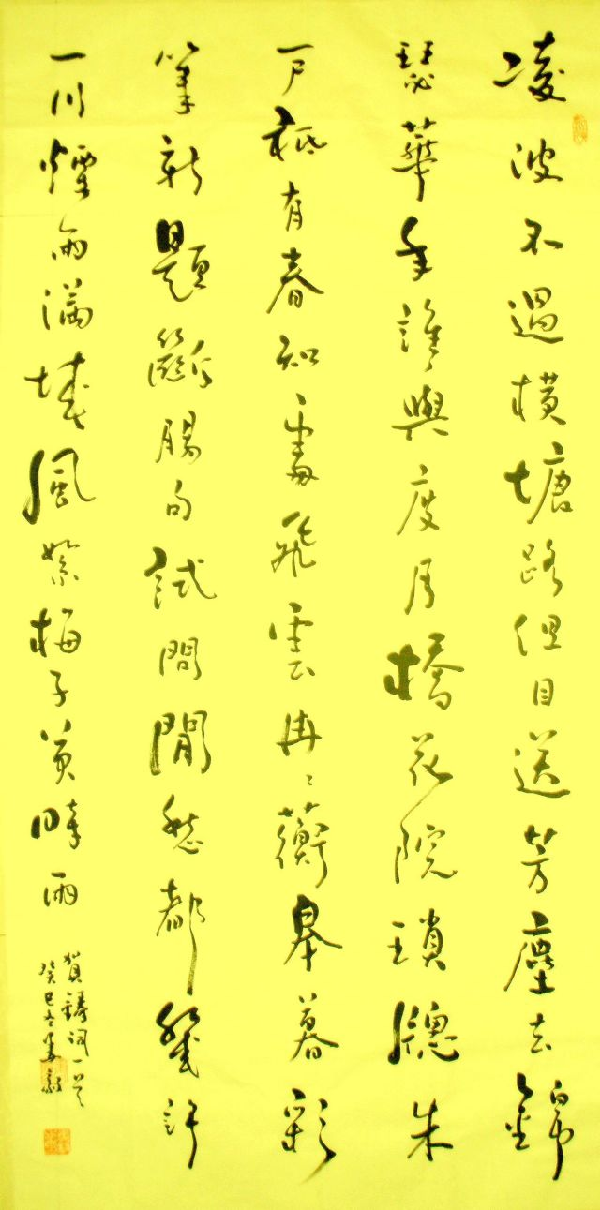 凌波不過橫塘路但目送芳塵去錦
瑟華年誰與度月橋花院瑣牕朱
戶祗有春知處飛雲冉〻蘅皋暮彩
筆新題斷腸句試問閒愁都幾許
一川煙雨滿城風絮梅子黃時雨
賀鑄詞一首
癸巳